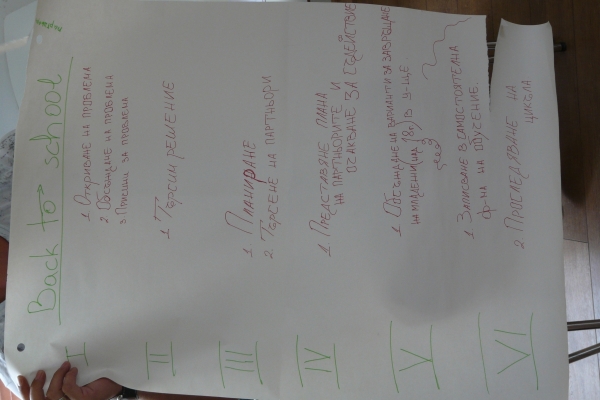 Back to school
I
1. Откриване на проблема
2. Обсъждане на проблема
3. за проблема
II
1. Търсим решение
III
1. Планиране
2. Търсене на партньори
IV
1. Представяне плана
на партньорите и
очакване за съдействие
V
1. Обсъждане на варианти за завръщане
на младежи (над 18г) в у-ще
VI
1. Записване в самостоятелна
ф-ма на обучение.
2. Проследяване на
цикъла